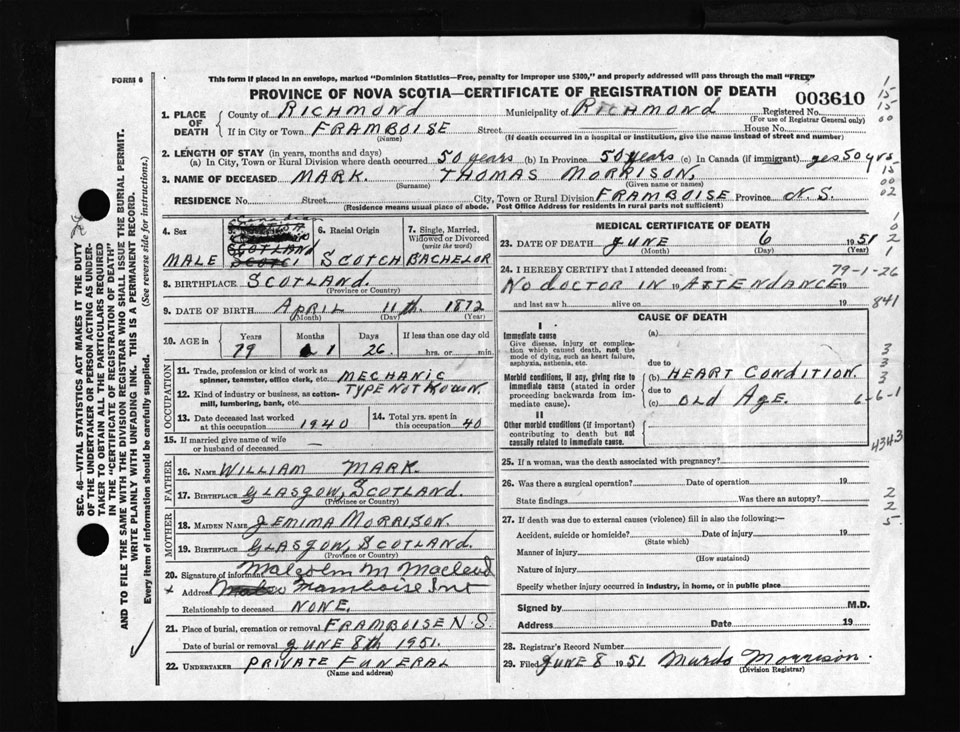 FORM 6
This form if placed in an envelope, marked "Dominion Statistics—Free, penalty for improper use $300," and properly addressed will pass through the mail "FREE"
PROVINCE OF NOVA SCOTIA—CERTIFICATE OF REGISTRATION OF DEATH
003610
1. PLACE OF DEATH
County of RICHMOND Municipality of RICHMOND Registered No.
(For use of Registrar General only)
If in City or Town FRAMBOISE Street House No.
(Name) (If death occurred in a hospital or institution, give the name instead of street and number)
2. LENGTH OF STAY (in years, months and days)
(a) In City, Town or Rural Division where death occurred 50 years (b) In Province 50 years (c) In Canada (if immigrant) yes 50 yrs
3. NAME OF DECEASED MARK. THOMAS MORRISON,
(Surname) (Given name or names)
RESIDENCE No. Street City, Town or Rural Division FRAMBOISE Province N.S.
(Residence means usual place of abode. Post Office Address for residents in rural parts not sufficient)
4. Sex
MALE
Canadian
SCOTLAND
6. Racial Origin
SCOTCH
7. Single, Married, Widowed or Divorced
(write the word)
BACHELOR
8. BIRTHPLACE SCOTLAND.
(Province or Country)
9. DATE OF BIRTH APRIL 11th. 1872
(Month) (Day) (Year)
10. AGE in Years Months Days If less than one day old
79 1 26. hrs. or min.
OCCUPATION
11. Trade, profession or kind of work as spinner, teamster, office clerk, etc. MECHANIC
12. Kind of industry or business, as cotton-mill, lumbering, bank, etc. TYPE NOT KNOWN.
13. Date deceased last worked at this occupation 1940
14. Total yrs. spent in this occupation 40
15. If married give name of wife or husband of deceased —
FATHER
16. NAME WILLIAM MARK.
17. BIRTHPLACE GLASGOW, SCOTLAND.
(Province or Country)
MOTHER
18. MAIDEN NAME JEMIMA MORRISON.
19. BIRTHPLACE GLASGOW, SCOTLAND.
(Province or Country)
20. Signature of informant Malcolm M Macleod
x Address Framboise Int
Relationship to deceased NONE.
21. Place of burial, cremation or removal FRAMBOISE N.S.
Date of burial or removal JUNE 8th 1951.
22. UNDERTAKER PRIVATE FUNERAL
(Name and address)
MEDICAL CERTIFICATE OF DEATH
23. DATE OF DEATH JUNE 6 1951
(Month) (Day) (Year)
24. I HEREBY CERTIFY that I attended deceased from: 79-1-26
NO DOCTOR IN 19 ATTENDANCE 19
and last saw h alive on 19 841
CAUSE OF DEATH
I
Immediate cause
Give disease, injury or complication which caused death, not the mode of dying, such as heart failure, asphyxia, asthenia, etc.
(a)
due to
Morbid conditions, if any, giving rise to immediate cause (stated in order proceeding backwards from immediate cause).
(b) HEART CONDITION.
due to
(c) OLD AGE. 6-6-1
II
Other morbid conditions (if important) contributing to death but not causally related to immediate cause.
4343
25. If a woman, was the death associated with pregnancy?
26. Was there a surgical operation? Date of operation 19
State findings Was there an autopsy?
27. If death was due to external causes (violence) fill in also the following:—
Accident, suicide or homicide? Date of injury 19
(State which)
Manner of injury
(How sustained)
Nature of injury
Specify whether injury occurred in industry, in home, or in public place
Signed by M.D.
Address Date 19
28. Registrar's Record Number
29. Filed JUNE 8 1951 Murdo Morrison.
(Division Registrar)
1
15
15
00
15
00
02
1
0
2
1
3
3
3
2
2
5.
SEC. 46—VITAL STATISTICS ACT MAKES IT THE DUTY
OF THE UNDERTAKER OR PERSON ACTING AS UNDERTAKER TO OBTAIN ALL THE PARTICULARS REQUIRED
IN THE "CERTIFICATE OF REGISTRATION OF DEATH"
AND TO FILE THE SAME WITH THE DIVISION REGISTRAR WHO SHALL ISSUE THE BURIAL PERMIT.
WRITE PLAINLY WITH UNFADING INK. THIS IS A PERMANENT RECORD.
Every item of information should be carefully supplied. (See reverse side for instructions.)